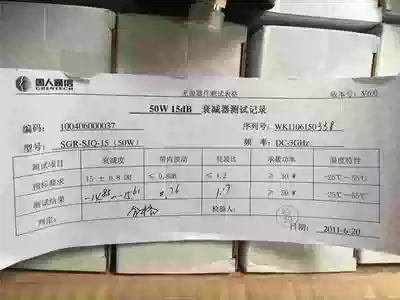 无源器件测试表格 版本号: V6.0
国人通信
GRENTECH
50W 15dB 衰减器测试记录
编码: 100406000037 序列号: WK1106150338
型号: SGR-SJQ-15 (50W) 频 率: DC-3GHz
测试项目 衰减度 带内波动 驻波比 承载功率 温度特性
指标要求 15±0.8dB ≤0.8dB ≤1.2 ≥50W -25℃~55℃
测试结果 -14.85~-15.61 ≥50W -25℃~55℃
判定: 合格 检验人:
2011-6-20